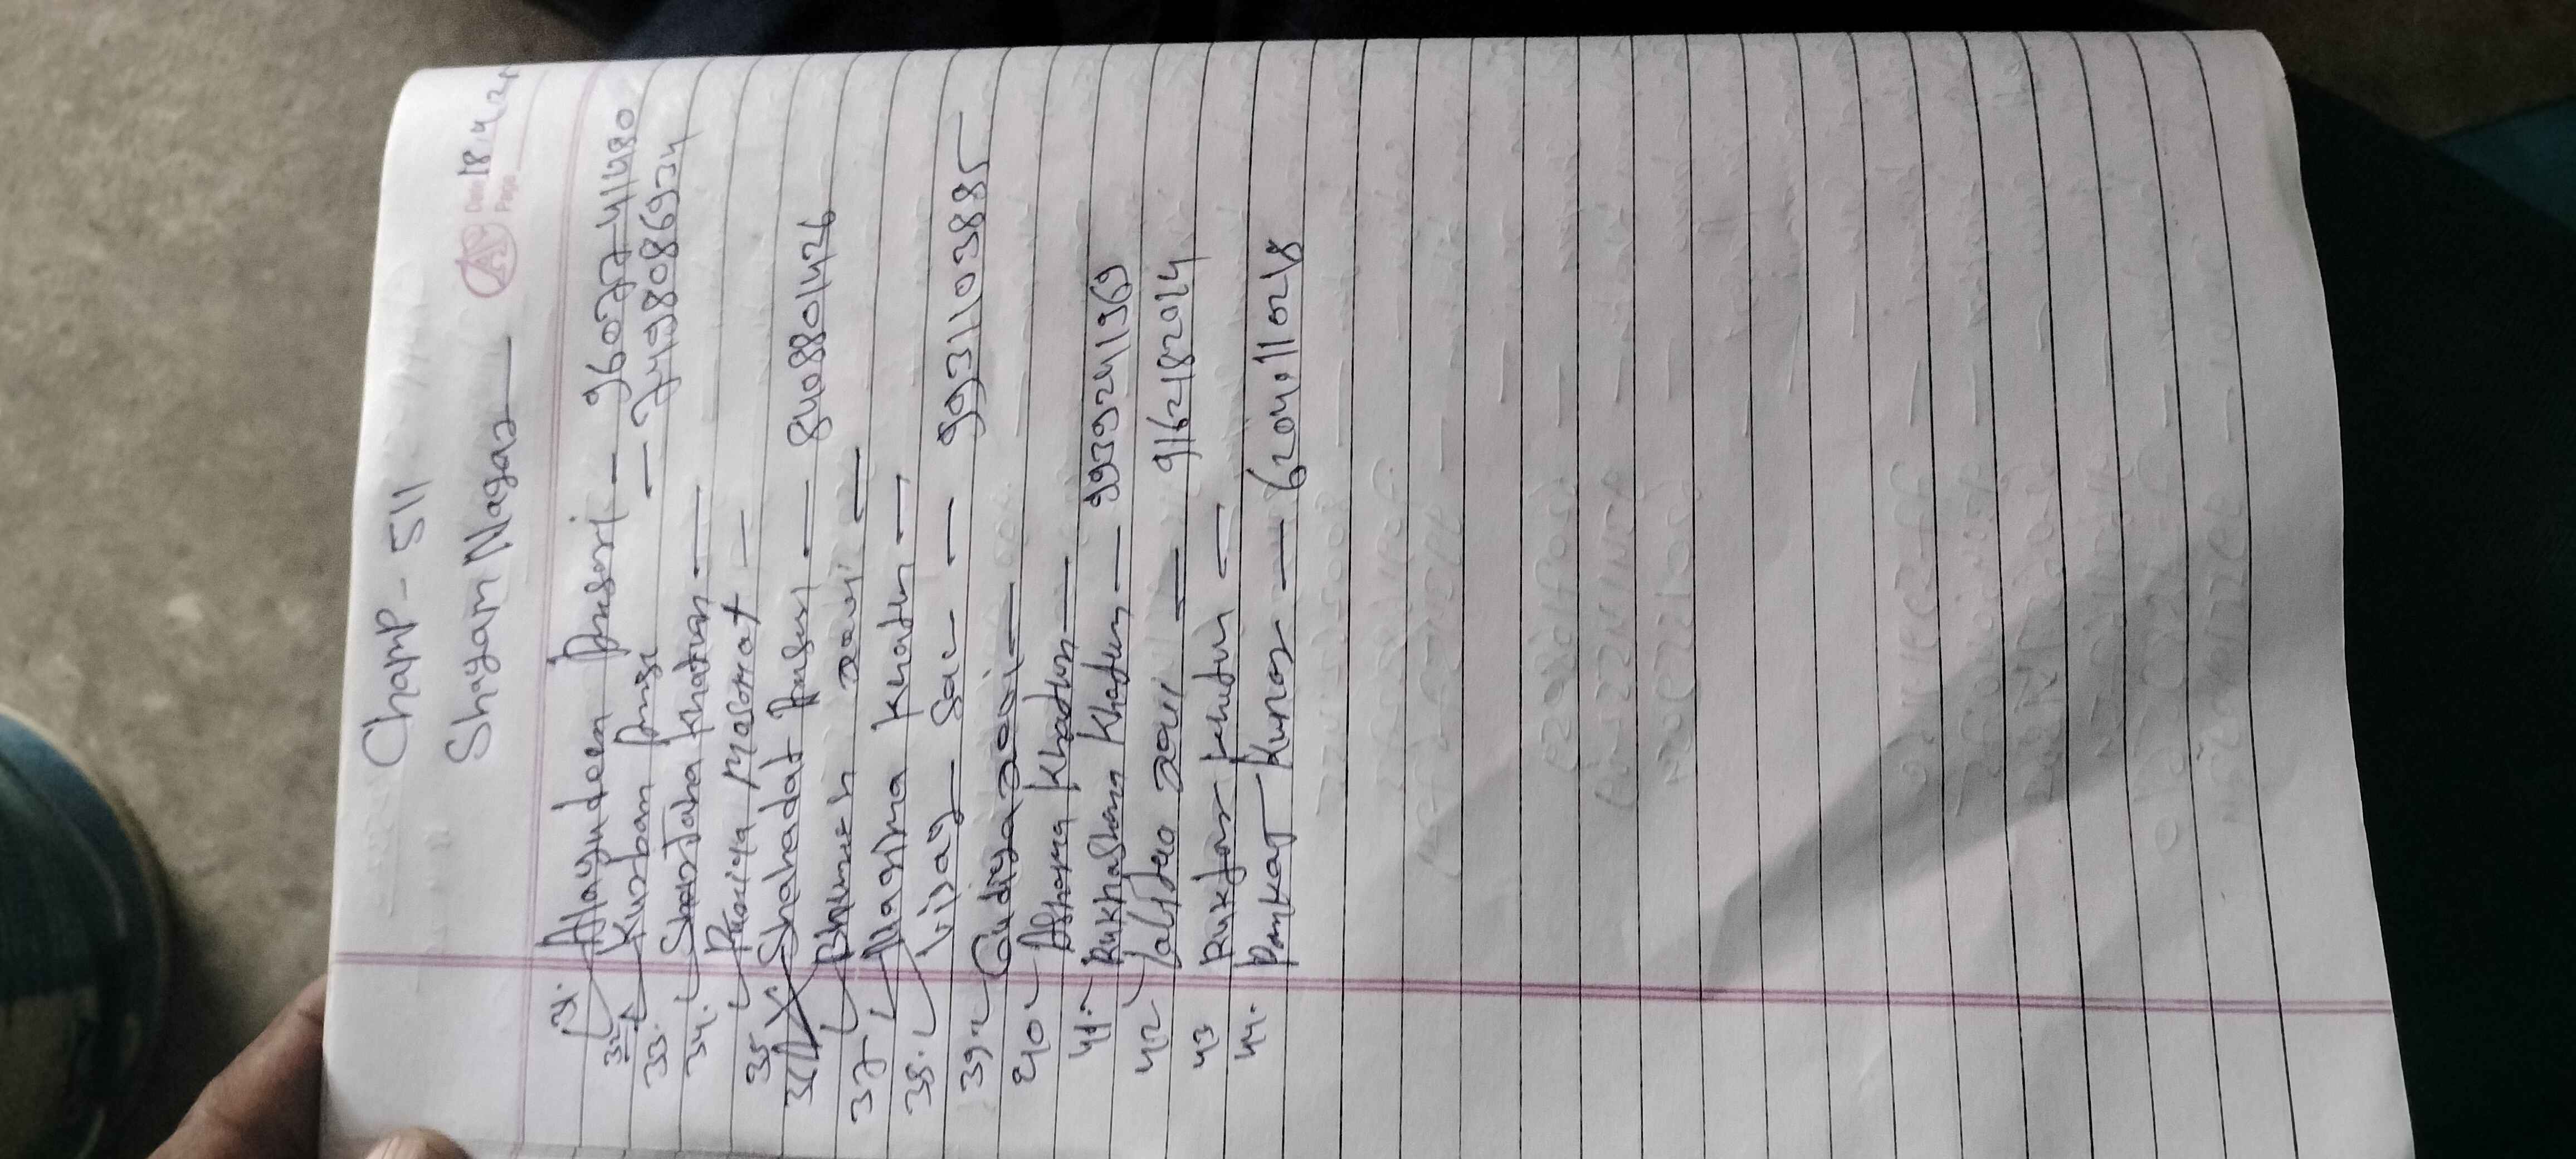 Champ - 511
Shyam Nagar
Date 18.4.2
Page
31. Alayudeen Ansari - 9607741480
32. Kurban Ansari - 7498086934
33. Shantaha Khatun
34. Puniya
35. Shahadat Ansari - 8408801426
36. Bhunesh Devi
37. Nagina Khatun
38. Sau - 9931103885
39. Gudiya Devi
40. Khatun
41. Rukhashana Khatun - 9939241969
42. Lalita Devi - 9162182014
43 Ruktar Khatun
44. Pankaj Kumar - 6204110218